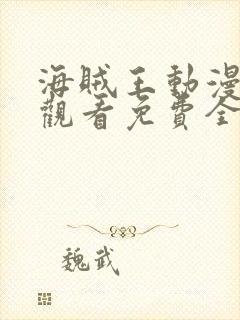 海賊王動漫
觀看免費全
魏武